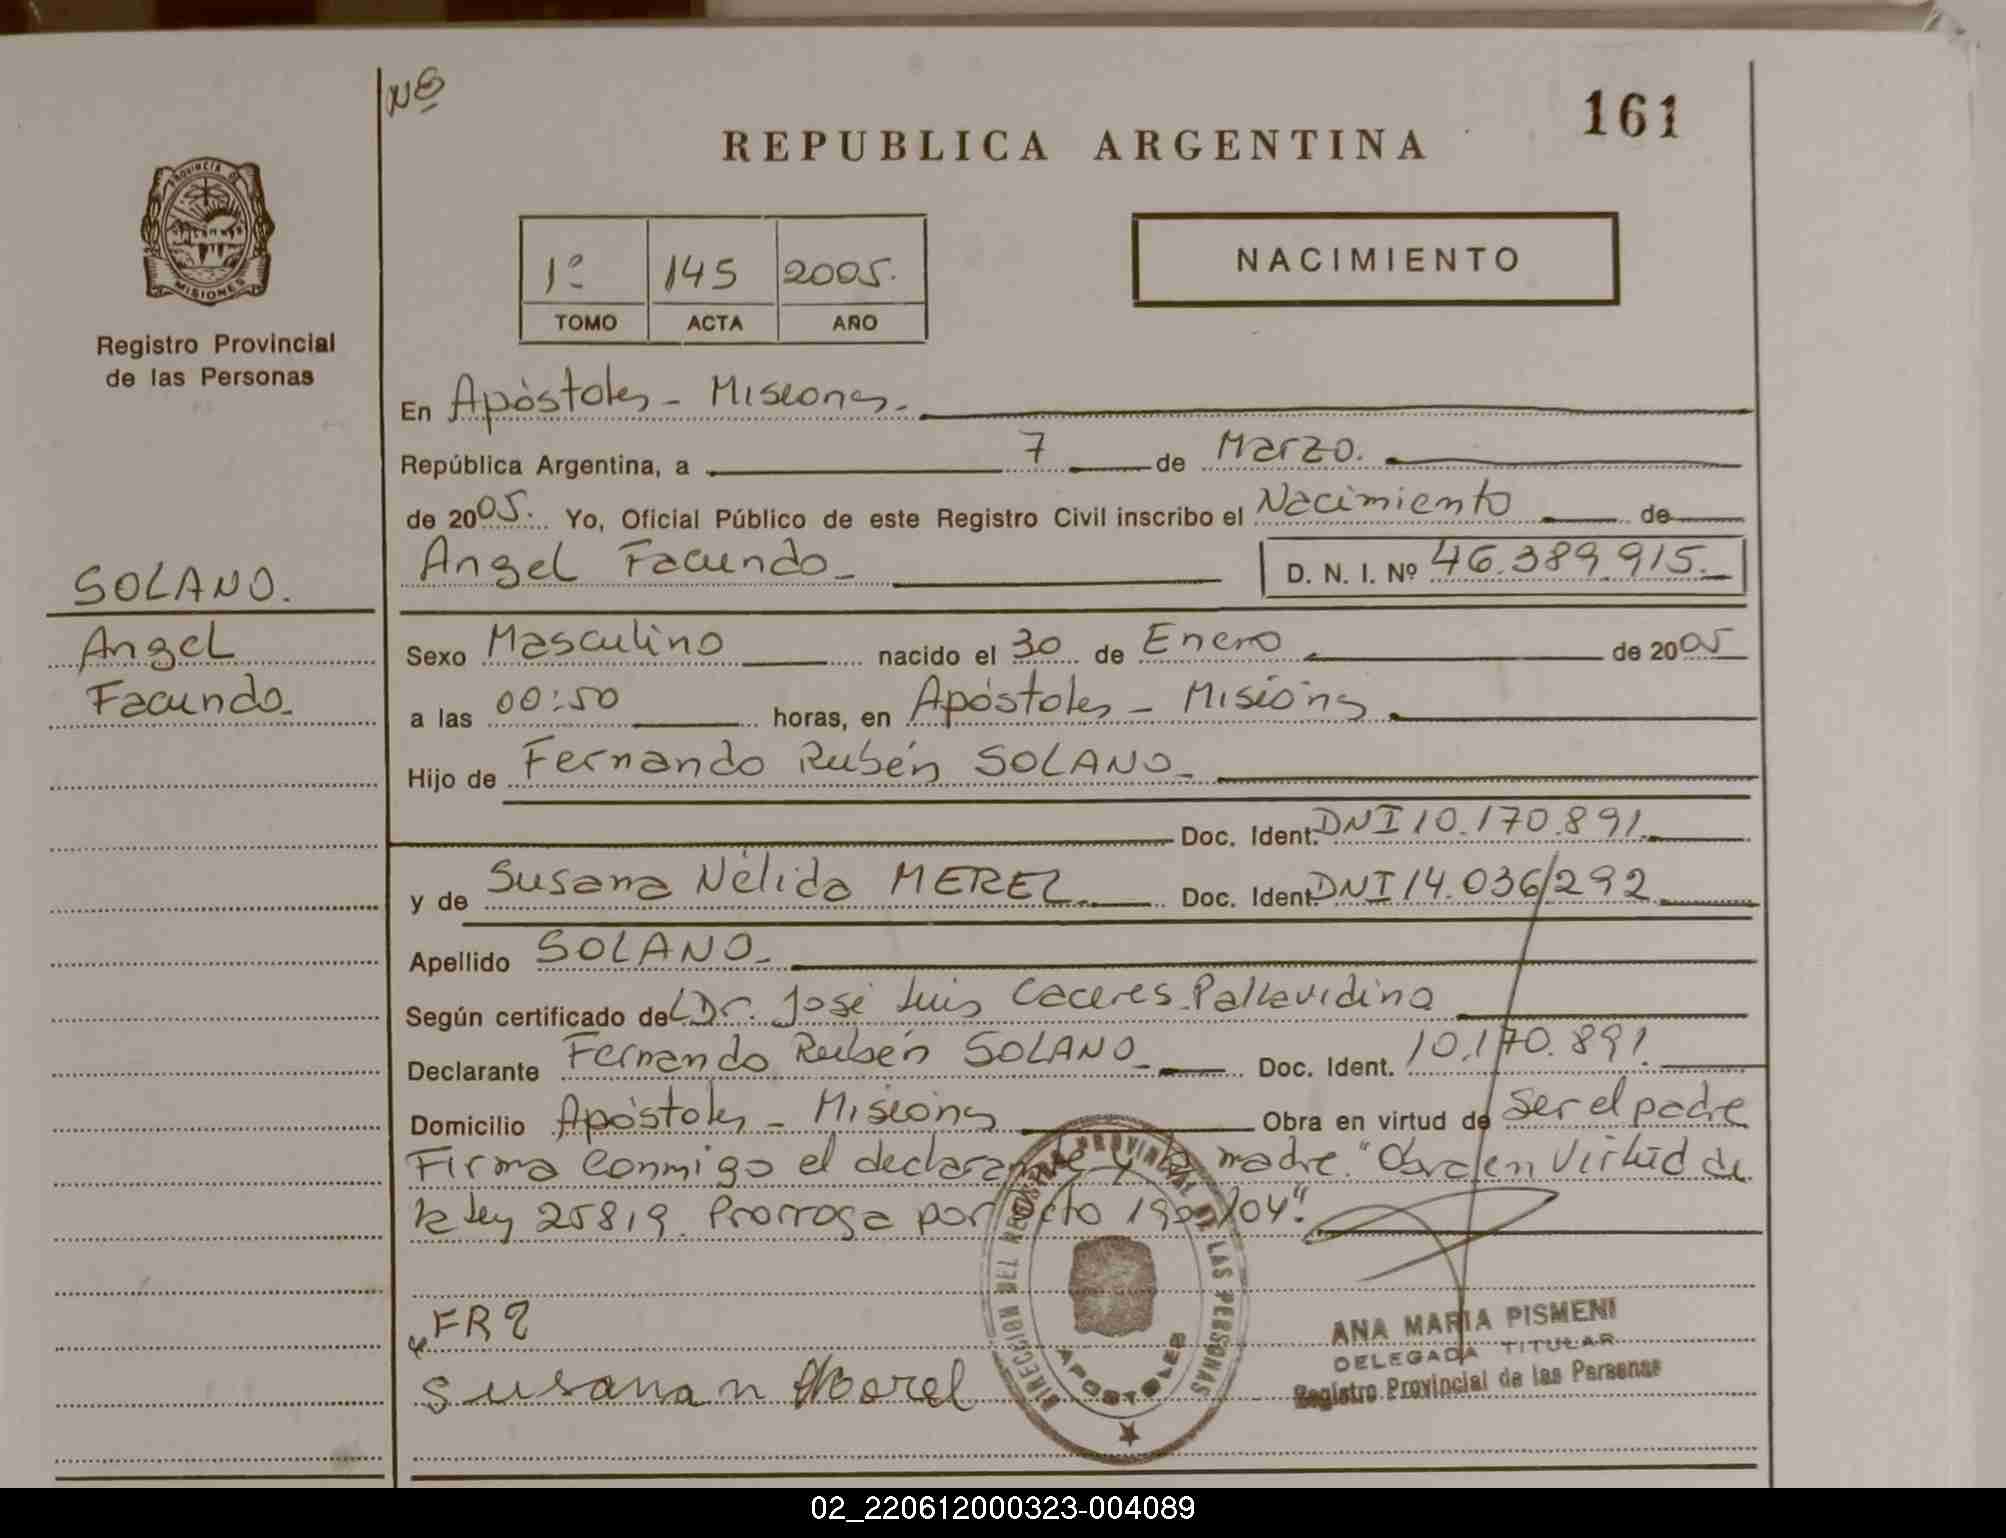 Nº
161
REPUBLICA ARGENTINA
PROVINCIA DE MISIONES
Registro Provincial
de las Personas
1º 145 2005.
TOMO ACTA AÑO
NACIMIENTO
En Apóstoles - Misiones.
República Argentina, a 7 de Marzo.
de 2005. Yo, Oficial Público de este Registro Civil inscribo el Nacimiento de
Angel Facundo D. N. I. Nº 46.389.915.
SOLANO.
Angel
Facundo
Sexo Masculino nacido el 30 de Enero de 2005
a las 00:50 horas, en Apóstoles - Misiones
Hijo de Fernando Rubén SOLANO
Doc. Ident. DNI 10.170.891.
y de Susana Nélida MEREL Doc. Ident. DNI 14.036/292
Apellido SOLANO
Según certificado del Dr. José Luis Caceres Pallavidino
Declarante Fernando Rubén SOLANO Doc. Ident. 10.170.891.
Domicilio Apóstoles - Misiones Obra en virtud de Ser el padre
Firma conmigo el declarante y la madre. "Obra en Virtud de
la ley 25819. Prorroga por /04".
DIRECCION DEL REGISTRO PROVINCIAL DE LAS PERSONAS
APOSTOLES
ANA MARIA PISMENI
DELEGADA TITULAR
Registro Provincial de las Personas
FRS
Susana n Merel
02_220612000323-004089